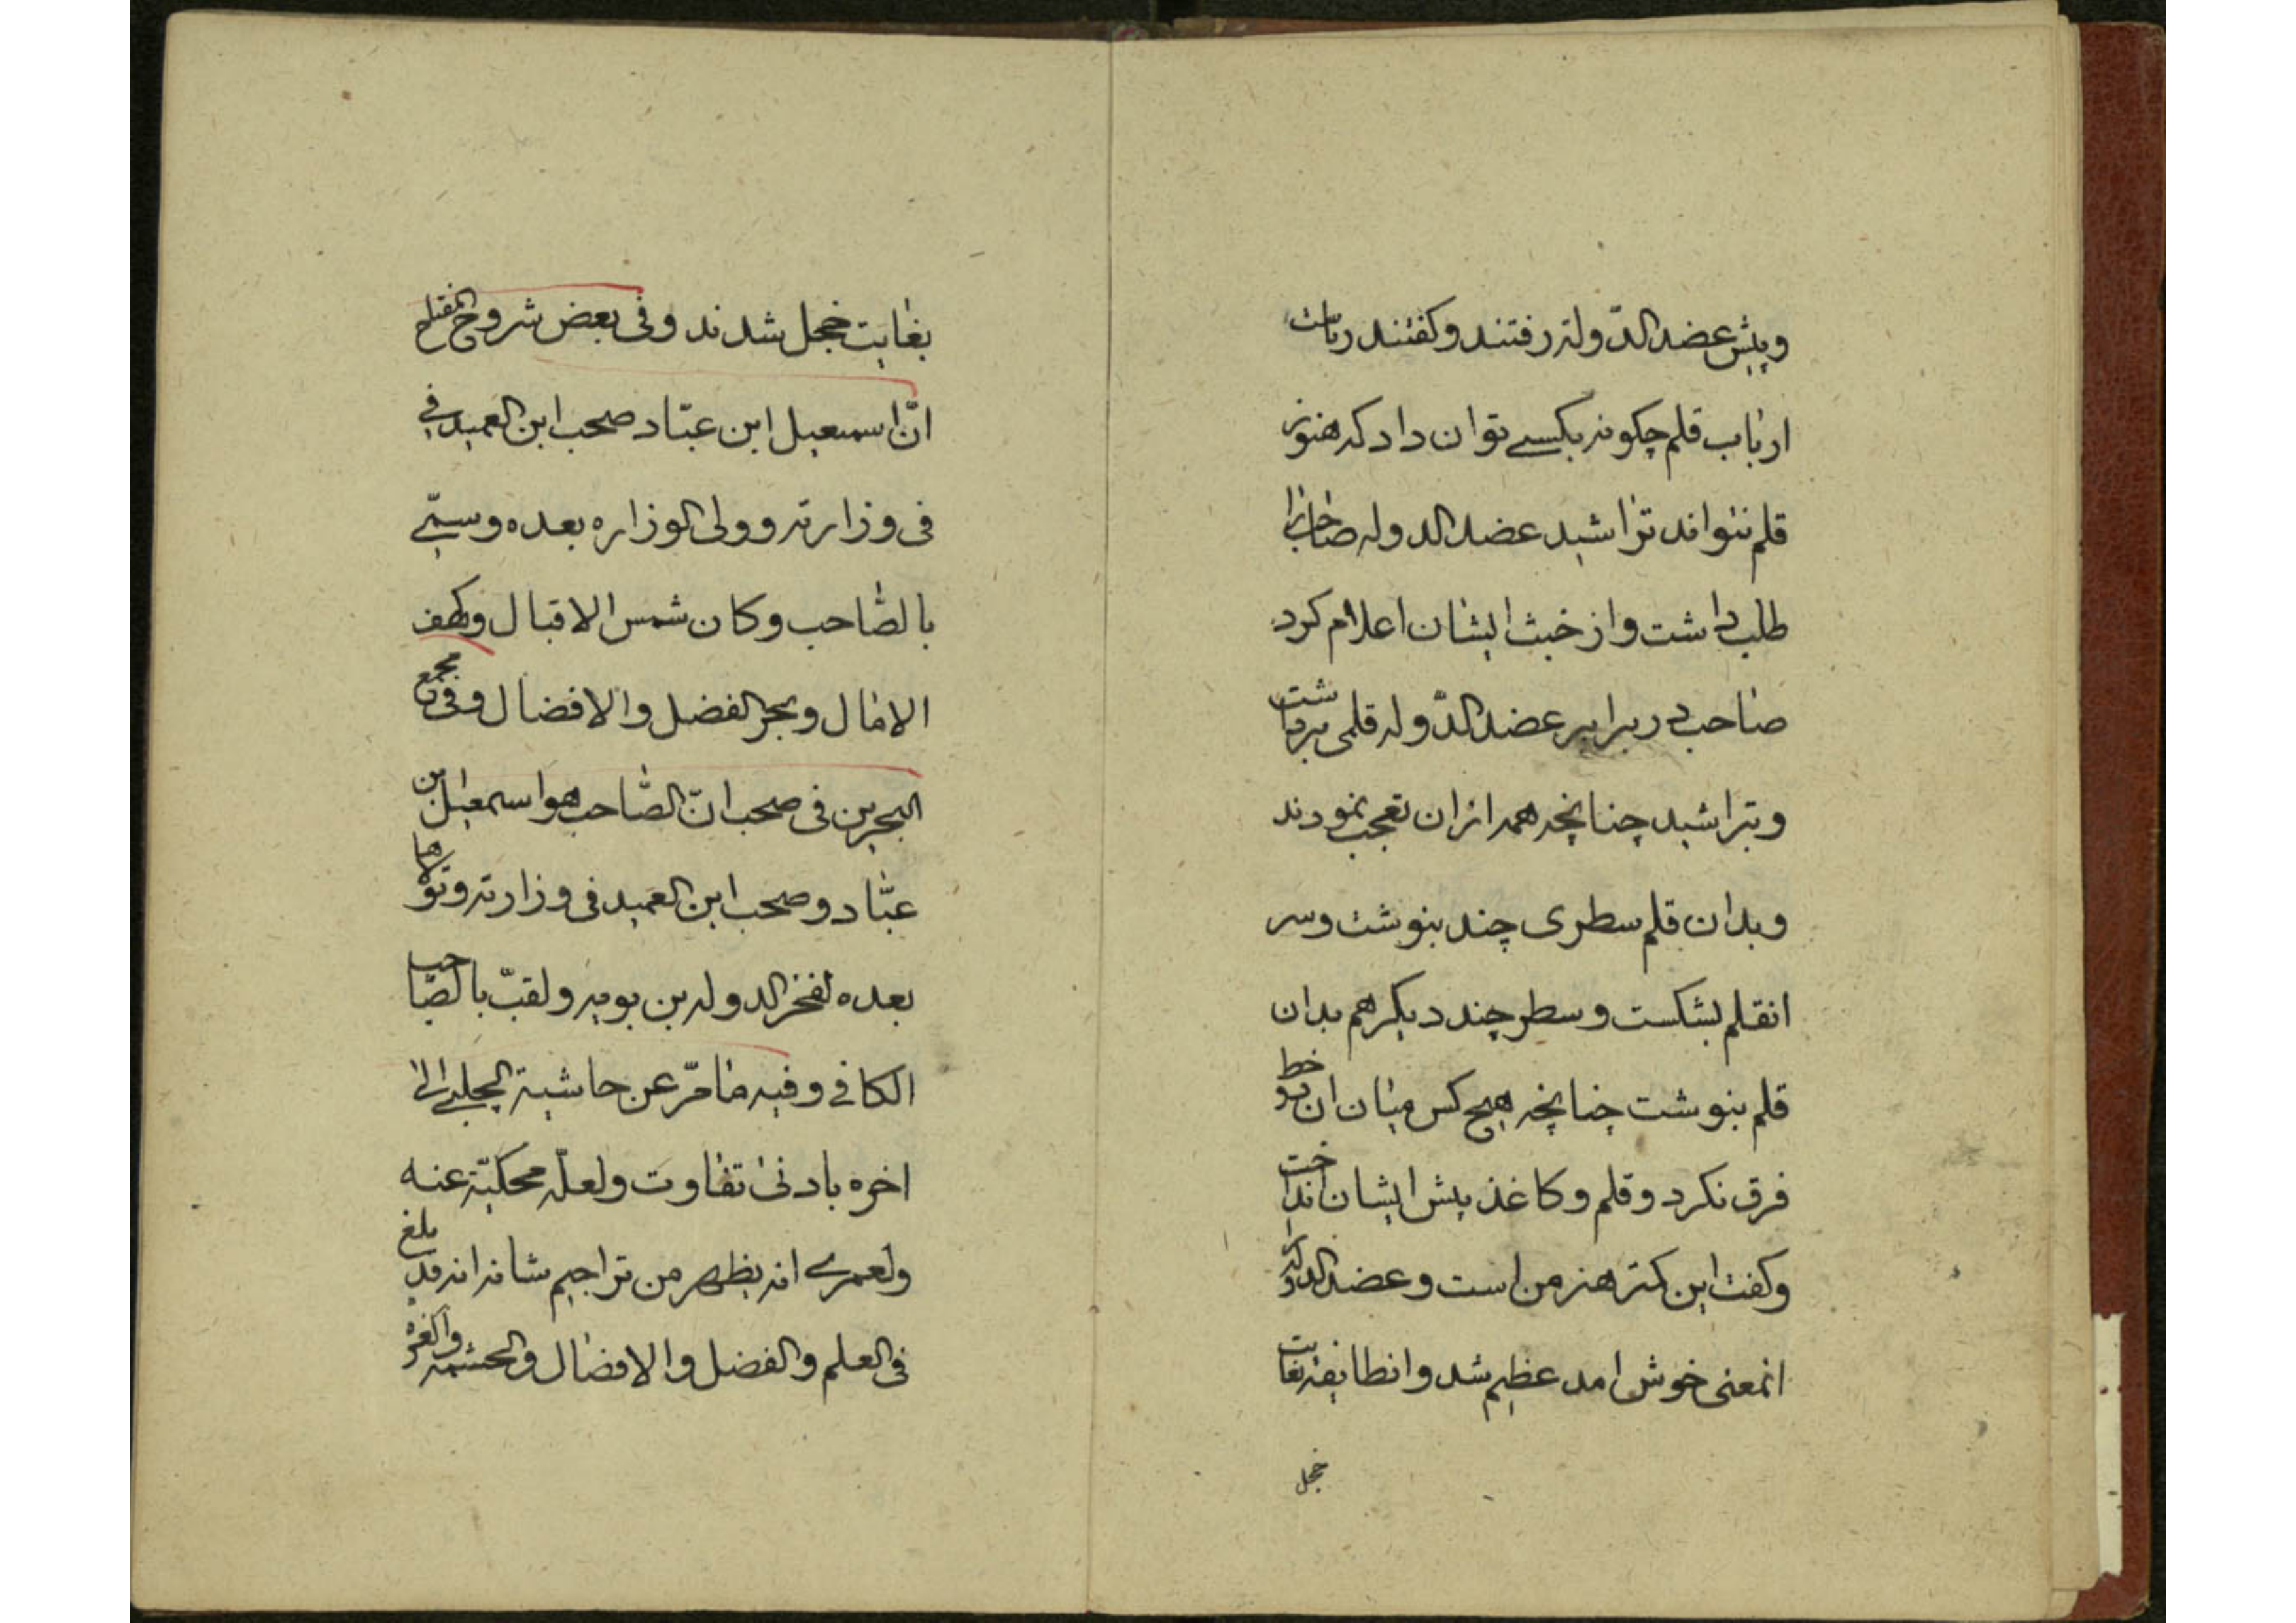 وپیش عضد الدّولة رفتند وکفتند ریاست
ارباب قلم چکونه بکسے توان داد که هنوز
قلم نتواند تراشید عضد الدوله صاحب را
طلب داشت واز خبث ایشان اعلام کرد
صاحب در برابر عضد الدّوله قلمی برداشت
وبتراشید چنانچه همه ازان تعجب نمودند
وبدان قلم سطری چند بنوشت وسر
انقلم بشکست وسطر چند دیکر هم بدان
قلم بنوشت چنانچه هیچ کس میان ان دو خط
فرق نکرد وقلم وکاغذ پیش ایشان انداخت
وکفت این کتر هنر من است وعضد الدوله را
انمعنی خوش امد عظیم شد وانطایفه بغایت
خجل
بغایت خجل شدند وفی بعض شروح المفتاح
انّ اسمعیل ابن عبّاد صحب ابن العمید فی
فی وزارته وولی الوزاره بعده وسمّی
بالصّاحب وکان شمس الاقبال وکهف
الامال وبحر الفضل والافضال وفی مجمع
البحرین فی صحب انّ الصّاحب هو اسمعیل بن
عبّاد وصحب ابن العمید فی وزارته وتولاها
بعده لفخر الدوله بن بویه ولقبّ بالصّاحب
الکافے وفیه مامرّ عن حاشیة الچلبے الی
اخره بادنی تفاوت ولعلّه محکیّة عنه
ولعمرے انه یظهر من تراجیم شانه انه قد بلغ
فی العلم والفضل والافضال والحشمه والعزه